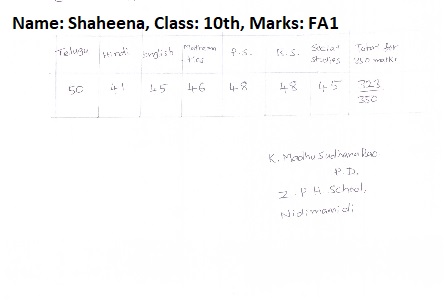 Name: Shaheena, Class: 10th, Marks: FA1
Telugu Hindi English Mathematics P.S. B.S. Social Studies Total for 350 marks
50 41 45 46 48 48 45 323/350
K. Madhu Sudhana Rao
P.D.
Z.P.H School,
Nidimamidi